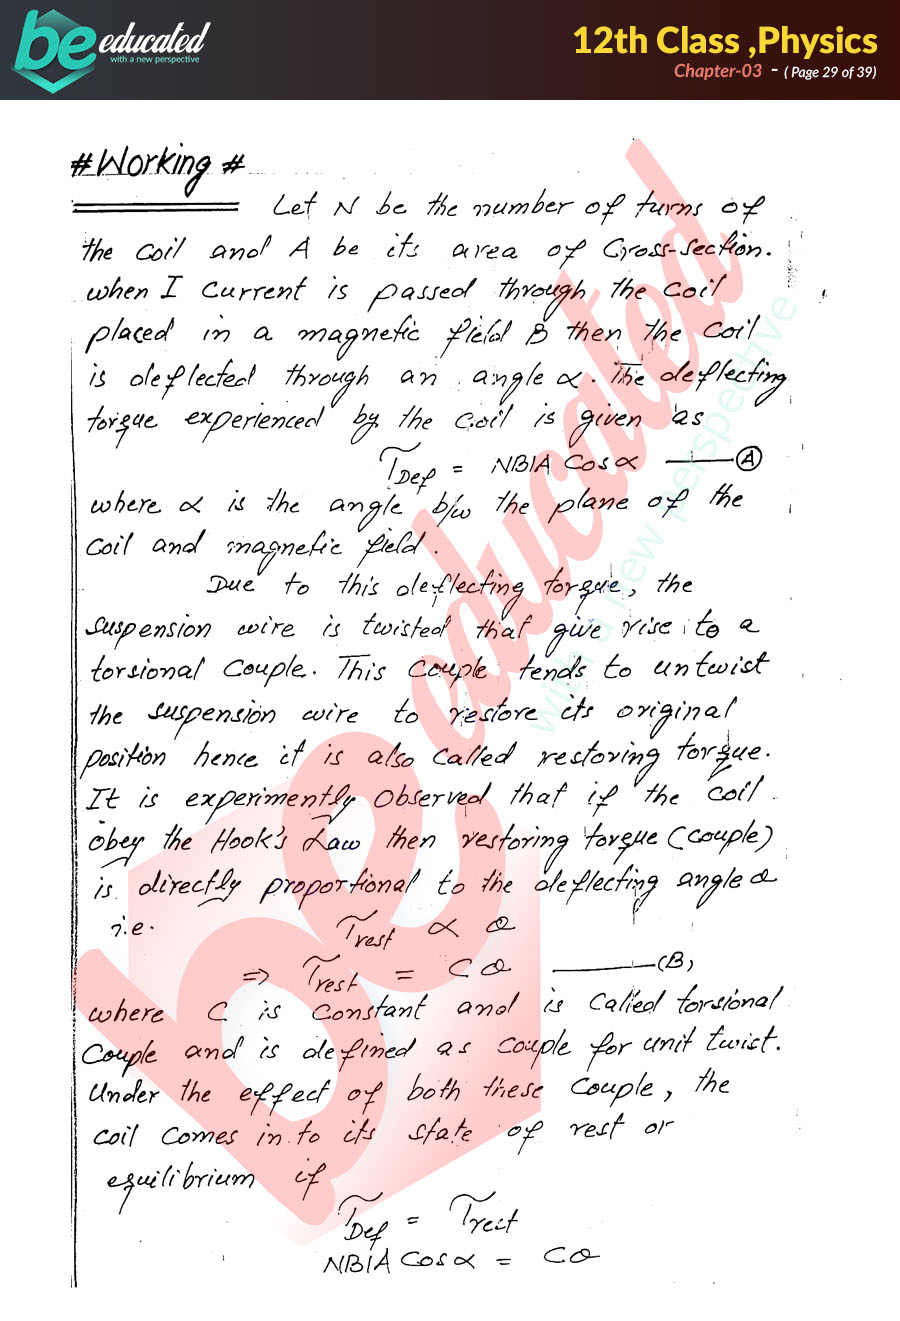 be educated
with a new perspective
12th Class ,Physics
Chapter-03 - ( Page 29 of 39)
# Working #
Let N be the number of turns of
the coil and A be its area of Cross-section.
when I current is passed through the coil
placed in a magnetic field B then the coil
is deflected through an angle α. The deflecting
torque experienced by the coil is given as
τDef = NBIA Cosα ——— (A)
where α is the angle b/w the plane of the
coil and magnetic field.
Due to this deflecting torque, the
suspension wire is twisted that give rise to a
torsional couple. This couple tends to untwist
the suspension wire to restore its original
position hence it is also called restoring torque.
It is experimently observed that if the coil
obey the Hook's Law then restoring torque (couple)
is directly proportional to the deflecting angle θ
i.e. τrest ∝ θ
⇒ τrest = Cθ ———(B)
where C is constant and is called torsional
couple and is defined as couple for unit twist.
Under the effect of both these couple, the
coil comes in to its state of rest or
equilibrium if
τDef = τrest
NBIA Cosα = Cθ
be educated
with a new perspective